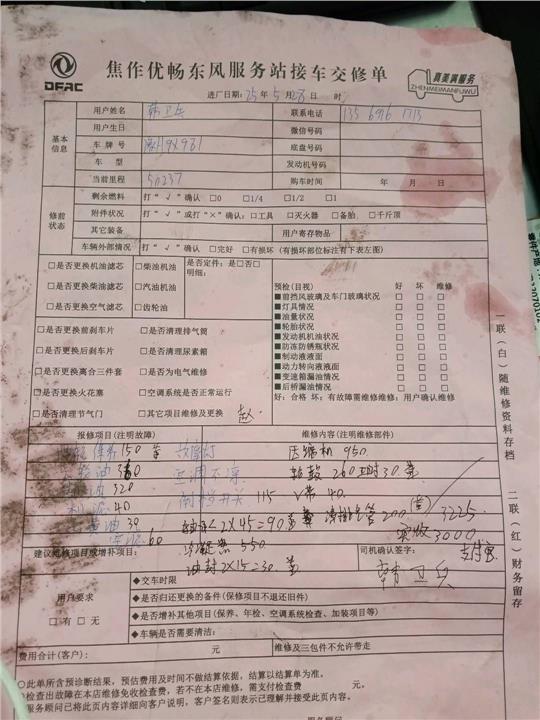 DFAC
焦作优畅东风服务站接车交修单
真美满服务
ZHENMEIMANFUWU
进厂日期：25年5月26日 时
基本信息
用户姓名 韩卫兵 联系电话
用户生日 微信号码
车牌号 底盘号码
车型 发动机号码
当前里程 50237 购车时间 年 月 日
修前状态
剩余燃料 打“√”确认 □0 □1/4 □1/2 □1
附件状况 打“√”或打“×”确认：□工具 □灭火器 □备胎 □千斤顶
其它装备 用户寄存物品
车辆外部情况 打“√”确认 □完好 □有损坏（有损坏部位标注有下表左图）
□是否更换机油滤芯 □柴油机油 是否定件：是□否□
明细：
□是否更换柴油滤芯 □汽油机油
□是否更换空气滤芯 □齿轮油
预检(目视) 好 坏 维修
■前挡风玻璃及车门玻璃状况 □ □ □
■灯具情况 □ □ □
■油量状况 □ □ □
■轮胎状况 □ □ □
■发动机机油状况 □ □ □
■防冻防锈瓶状况 □ □ □
■制动液液面 □ □ □
■动力转向液液面 □ □ □
■变速箱漏油情况 □ □ □
■后桥漏油情况 □ □ □
好：合格 坏：有故障需维修维修：用户确认维修
□是否更换前刹车片 □是否清理排气筒
□是否更换后刹车片 □是否清理尿素箱
□是否更换离合三件套 □是否为电气维修
□是否更换火花塞 □空调系统是否正常运行
□是否清理节气门 □其它项目维修及更换 赵
报修项目(注明故障) 维修内容(注明维修部件)
150 故障灯 压缩机 950
空调不凉 轮鼓 260 工时30
320 倒档开关 115 V带 40
40 200 3225
39 2×45=90 实收 3000
60 冷凝器 550 支付宝
油封 2×15=30
建议维修项目或增补项目： 司机确认签字： 韩卫兵
用户要求
□有 □无
◆交车时限
◆是否归还更换的备件（保修项目不退还旧件）
◆是否增补其他项目(保养、年检、空调系统检查、加装项目等)
◆车辆是否需要清洁：
费用合计(客户)： 元 维修及三包件不允许带走
○此单所含预诊断结果，预估费用及时间不做结算依据，结算以结算单为准。
检查出故障在本店维修免收检查费，若不在本店维修，需支付检查费 元。
服务顾问已将此页内容详细向客户说明，客户签名则表示已理解并接受此页内容。
一联（白）随维修资料存档
二联（红）财务留存